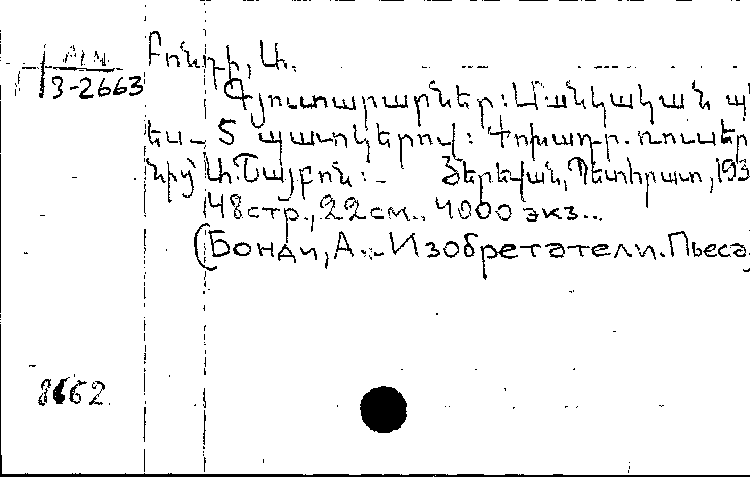 ALN
3-2663
Բոնդի, Ա.
Գյուտարարներ: Մանկական պ
ես- 5 պատկերով: Փոխադր. ռուսեր
նից՝ Ա. Շայբոն:- Յերեվան, Պետհրատ, 193
48стр., 22см.. 4000 экз..
(Бонди, А.- Изобретатели. Пьеса
8662